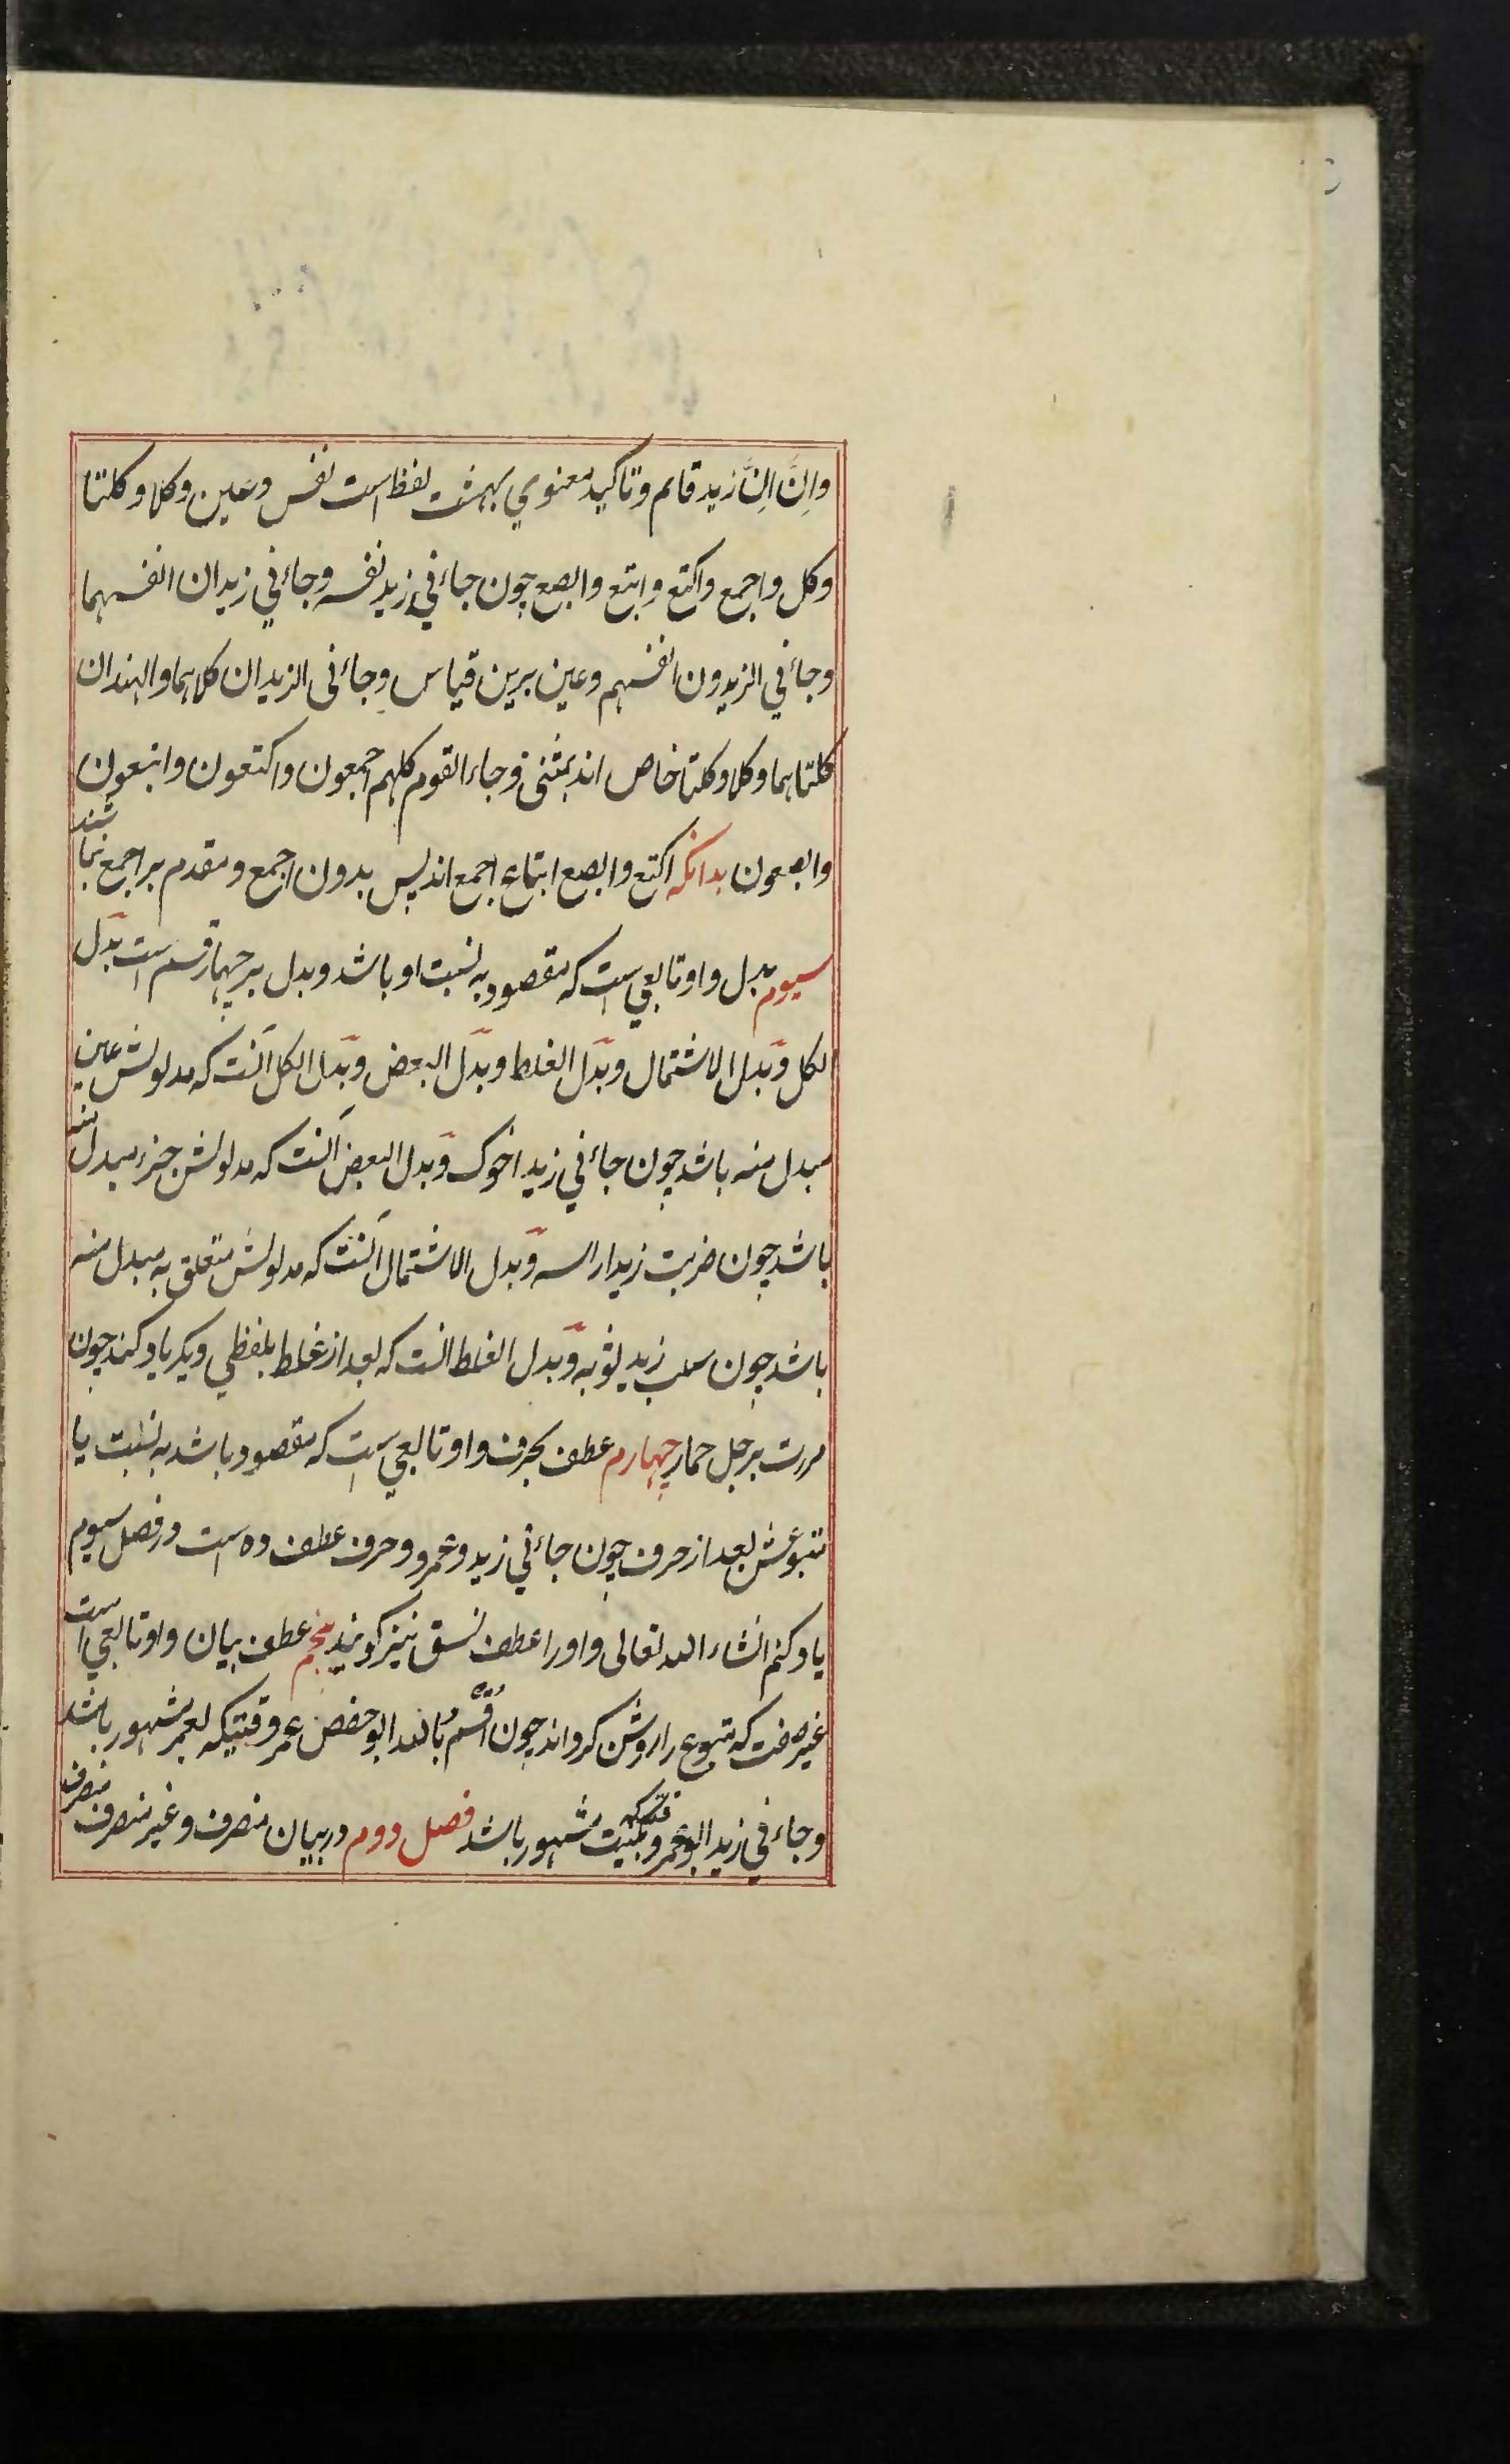 واِنَّ اِنَّ زید قایم وتاکید معنوي بهشت لفظ است نفس وعین وکلا وکلتا
وکل واجمع واکتع وابتع وابصع چون جاءني زید نفسه وجاءني زیدان انفسهما
وجاءني الزیدون انفسهم وعین برین قیاس وجاءنی الزیدان کلاهما والهندان
کلتاهما وکلا وکلتا خاص اند بمثنی وجاء القوم کلهم اجمعون واکتعون وابتعون
وابصعون بدانکه اکتع وابصع اتباع اجمع اند پس بدون اجمع ومقدم بر اجمع نباشند
سیوم بدل واو تابعي است که مقصود به نسبت او باشد وبدل بر چهار قسم است بدل
لکل وبدل الاشتمال وبدل الغلط وبدل البعض وبدل الکل آنست که مدلولش عین
مبدل منه باشد چون جاءني زید اخوک وبدل البعض آنست که مدلولش جزء مبدل منه
باشد چون ضربت زیدا راسه وبدل الاشتمال آنست که مدلولش متعلق به مبدل منه
باشد چون سلب زید ثوبه وبدل الغلط انست که بعد از غلط بلفظي دیکر یاد کنند چون
مررت برجل حمار چهارم عطف بحرف واو تابعي است که مقصود باشد به نسبت با
متبوعش بعد از حرف چون جاءني زید وعمرو وحرف عطف ده است در فصل سیوم
یاد کنم انشاء الله تعالی واورا عطف نسق نیز کویند پنجم عطف بیان واو تابعي است
غیر صفت که متبوع را روشن کرداند چون اُقْسَمُ بالله ابو حفص عمر وقتیکه بعمر مشهور باشد
وجاءني زید ابو عمرو وقتیکه بکنیت مشهور باشد فصل دوم در بیان منصرف وغیر منصرف منصرف